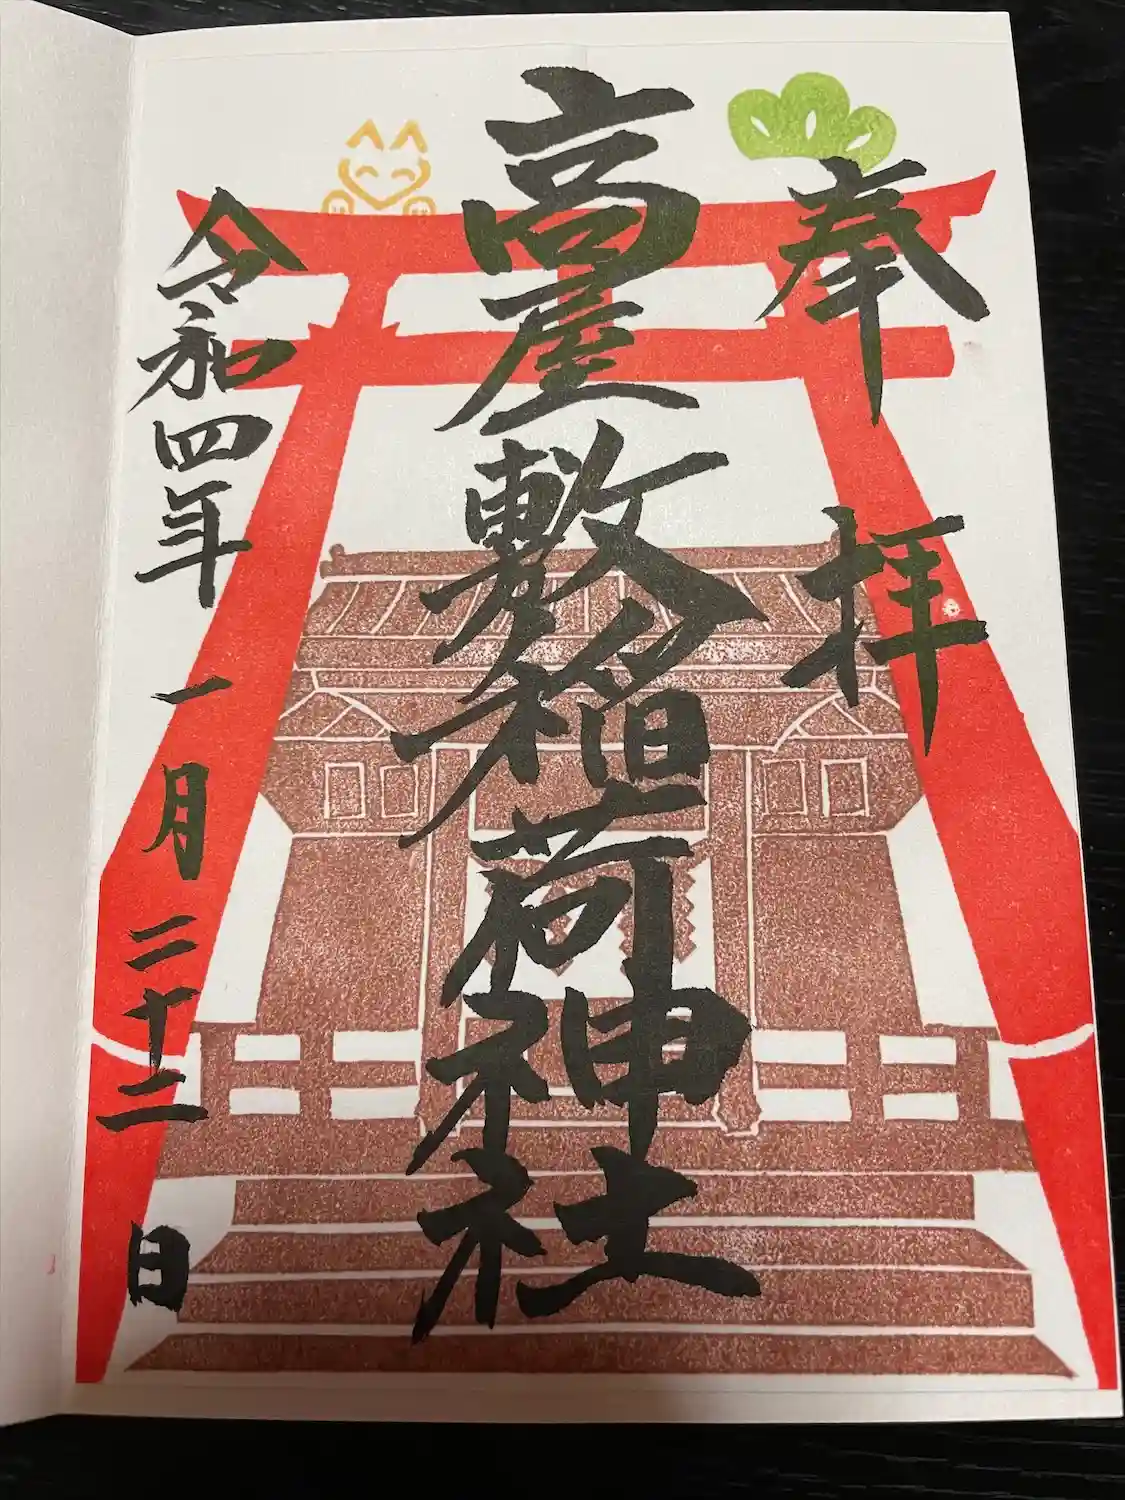 奉拝
高屋敷稲荷神社
令和四年一月二十二日